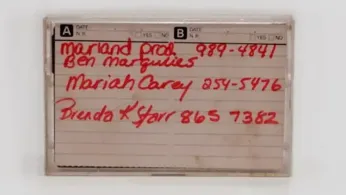 A DATE N.R. YES NO B DATE N.R. YES NO
Marland Prod. 989-4841
Ben Margulies
Mariah Carey 254-5476
Brenda K Starr 865 7382